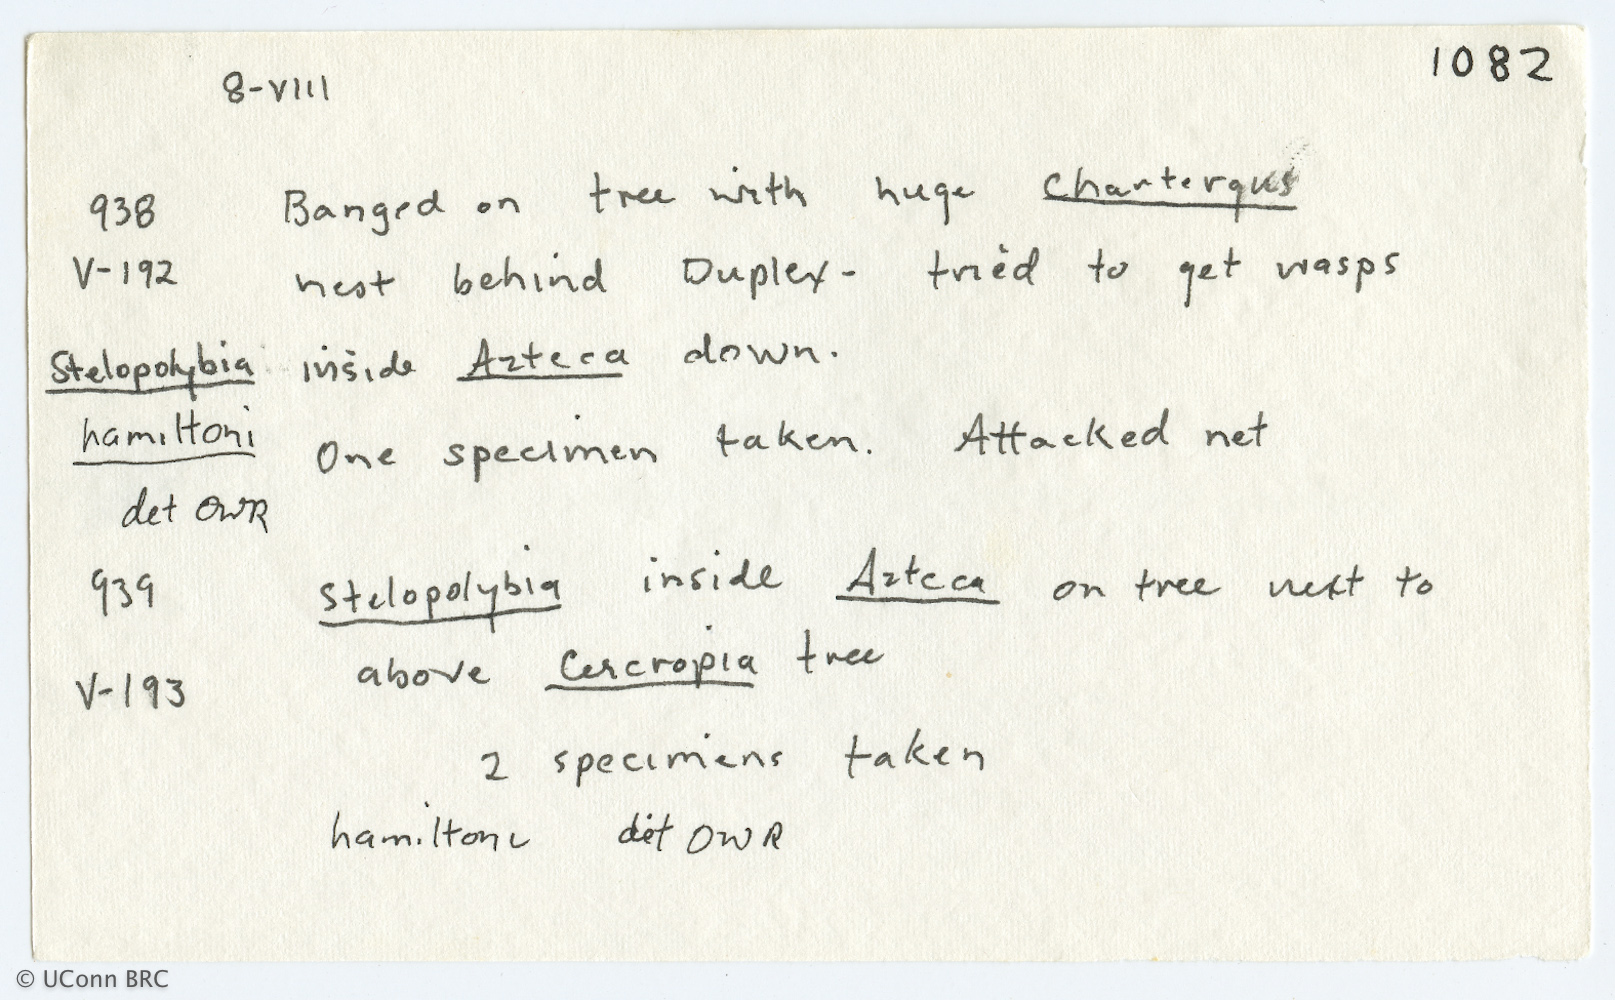 1082
8-VIII
938 Banged on tree with huge Chartergus
V-192 nest behind Duplex- tried to get wasps
Stelopolybia inside Azteca down.
hamiltoni One specimen taken. Attacked net
det OWR
939 Stelopolybia inside Azteca on tree next to
above Cercropia tree
V-193
2 specimens taken
hamiltoni det OWR
© UConn BRC